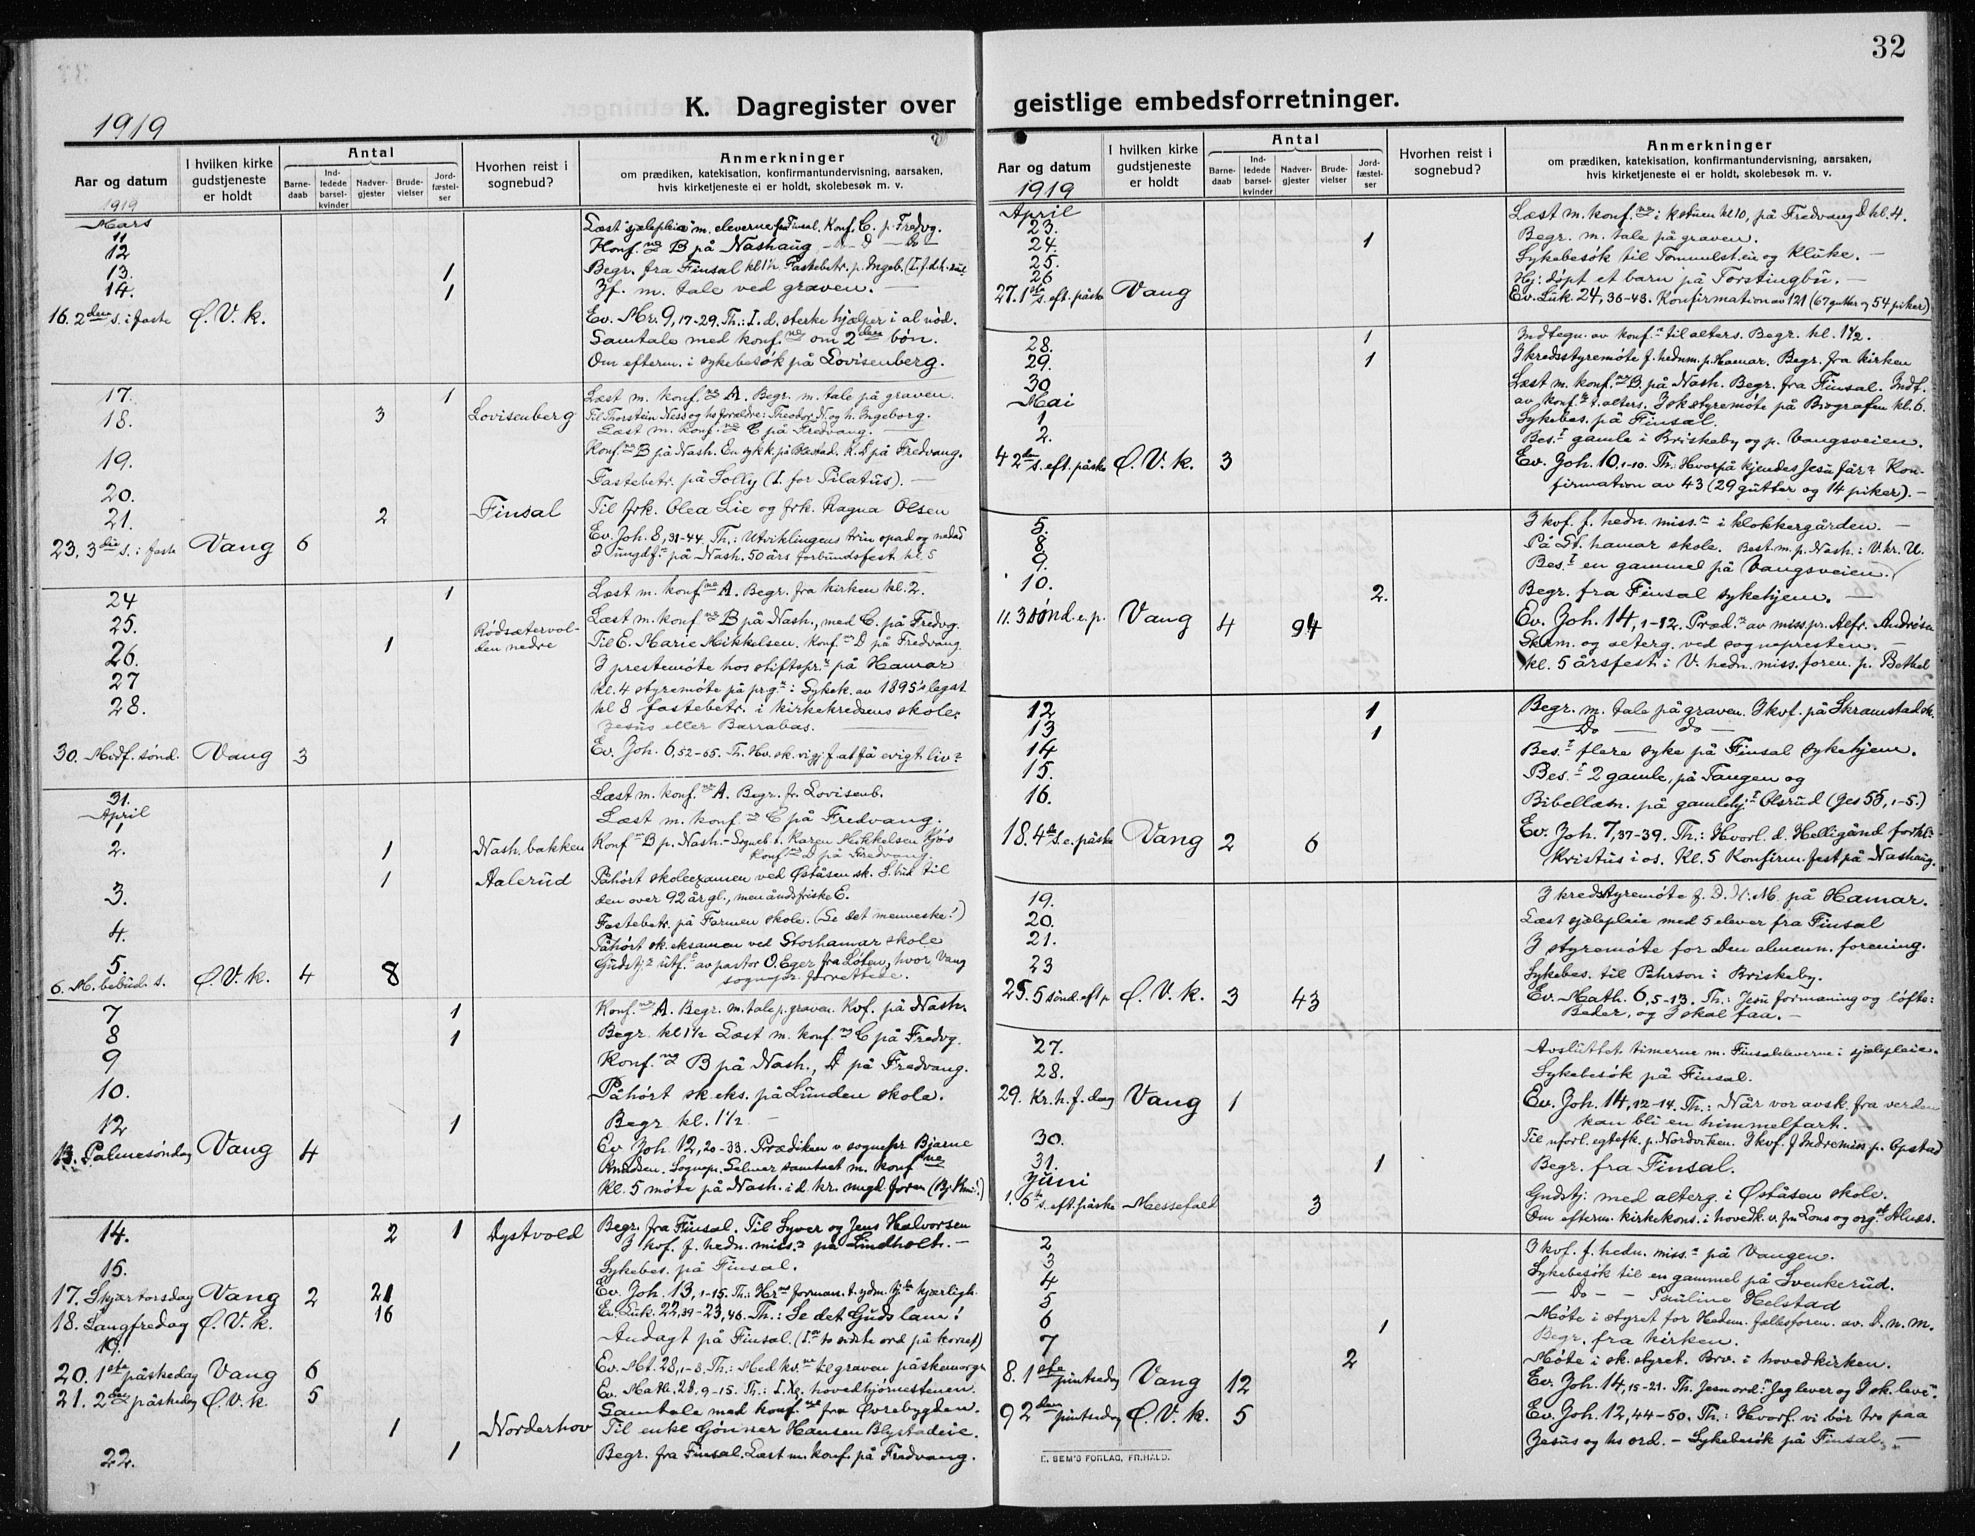 32
K. Dagregister over geistlige embedsforretninger.
1919
Aar og datum
I hvilken kirke gudstjeneste er holdt
Antal
Barne-daab
Ind-ledede barsel-kvinder
Nadver-gjester
Brude-vielser
Jord-fæstel-ser
Hvorhen reist i sognebud?
Anmerkninger
om prædiken, katekisation, konfirmantundervisning, aarsaken,
hvis kirketjeneste ei er holdt, skolebesøk m. v.
1919
Mars
11 Læst sjælepleie m. eleverne fra Finsal. Konf. C. p. Fredvg.
12 Konf. B på Nashaug
13. 1 Begr. fra Finsal kl 1½ Fastebetr. p. Ingeb.
14. 1 If. m. tale ved graven. —
16. 2den s. i faste Ø. V. k. Ev. Mr. 9, 17-29. Th.: I. d. sterke hjælper i al nød.
Samtale med konf.ne om 2den bøn.
Om efterm. i sykebesøk på Lovisenberg.
17. 1 Læst m. konf.ne A. Begr. m. tale på graven.
18. 3 Lovisenberg Til Thorstein Ness og hs forældre: Theodor N. og h. Ingeborg.
Læst m. konf.ne C på Fredvang. —
19. Konf.ne B på Nash. En sykk. på K. D på Fredvang.
20. Fastebetr. på Solly (I. for Pilatus). —
21. 2 Finsal Til frk. Olea Lie og frk. Ragna Olsen
23. 3die s. i faste Vang 6 Ev. Joh. 8, 31-44. Th.: Utviklingens trin opad og nedad
I ungdf. på Nash. 50 års forbundsfest kl. 5
24 1 Læst m. konf.ne A. Begr. fra kirken kl. 2.
25. Læst m. konf.ne B på Nash., med C. på Fredvg.
26. 1 Rødsætervol-den nedre Til E. Marie Mikkelsen. Konf.ne D på Fredvang
27 I prestemøte hos stiftspr. på Hamar
kl. 4 styremøte på prg.: Sykek. av 1895's legat
28. kl 8 fastebetr. i kirkekredsens skole.
Jesus eller Barrabas. —
30. Midf. sønd. Vang 3 Ev. Joh. 6, 52-65. Th. Hv. sk. vi gj. f. at få evigt liv?
31. Læst m. konf.ne A. Begr. fr. Lovisenb.
April
1 Læst m. konf.ne C på Fredvang.
2. 1 Nash. bakken Konf.ne B p. Nash. – Sogneb. t. Karen Mikkelsen Kjøs
Konf.ne D på Fredvang.
3. 1 Aalerud Påhørt skoleexamen ved Øståsen sk. S. bud til
den over 92 år gl., men åndsfriske E.
4. Fastebetr. på Farmen skole. (Se det menneske!)
5. Påhørt sk. eksamen ved Storhamar skole
6. M. bebud. s. Ø. V. k. 4 8 Gudstj. utf. av pastor O. Eger fra Løten, hvor Vang
sognepr. forrettede.
7 1 Konf.ne A. Begr. m. tale p. graven. Kvf. på Nash.
8 1 Begr. kl 1½ Læst m. konf.ne C på Fredvg.
9 Konf.ne B på Nash., D på Fredvang.
10. Påhørt sk. eks. på Lunden skole.
12 1 Begr kl. 1½ –
13. Palmesøndag Vang 4 Ev Joh. 12, 20-33. Prædiken v sognepr Bjarne
Knudsen. Sognepr. Selmer samtaet m. konf.ne
kl. 5 møte på Nash. i d. kr. ungd foren
14. 2 1 Dystvold Begr. fra Finsal. Til Syver og Jens Halvorsen
I kvf. f. hedn. miss. på Lindholt. —
15. Sykebes. på Finsal.
17. Skjærtorsdag Vang 2 21 Ev. Joh. 13, 1-15. Th.: forman. t. ydm. kjærligh.
18. Langfredag Ø. V. k. 16 Ev. Luk. 22, 39-23, 46. Th.: Se det Guds lam!
19. Andagt på Finsal
20. 1ste påskedag Vang 6 Ev. Mt. 28, 1-8. Th.: Med kv.ne til graven påskemorgn
21. 2den påskedag Ø. V. k. 5 Ev. Math. 28, 9-15. Th.: hovedhjørnestenen.
Samtale med konf.ne fra Øvrebygden.
1 Norderhov Til enke Gønner Hansen Blystadeie.
22. 1 Begr. fra Finsal. Læst m. konf. på Fredvang.
Aar og datum
I hvilken kirke gudstjeneste er holdt
Antal
Barne-daab
Ind-ledede barsel-kvinder
Nadver-gjester
Brude-vielser
Jord-fæstel-ser
Hvorhen reist i sognebud?
Anmerkninger
om prædiken, katekisation, konfirmantundervisning, aarsaken,
hvis kirketjeneste ei er holdt, skolebesøk m. v.
1919
April
23. Læst m. konf.ne i kstuen kl 10, på Fredvang D kl. 4.
24. 1 Begr. m. tale på graven.
25. Sykebesøk til Tommelst. eie og Kluke. —
26 Hj. døpt et barn på Torstingbu. —
27. 1ste s. eft. påske Vang Ev. Luk. 24, 36-48. Konfirmation av 121 (67 gutter og 54 piker)
28. 1 Indtegn. av konf. til alters. Begr. kl. 1½.
29. 1 I kredsstyremøte f. hednm. p. Hamar. Begr. fra kirken
30 Læst m. konf.ne B. på Nash. Begr. fra Finsal. Indt.
av konf. t. alters. I sk. styremøte på Biografen kl. 6.
Mai
1 Sykebes. på Finsal.
2. Bes. gamle i Briskeby og p. Vangsveien.
4 2den s. eft. påske Ø. V. k. 3 Ev. Joh. 10, 1-10. Th.: Hvorpå kjendes Jesu får? Kon-
firmation av 43 (29 gutter og 14 piker). –
5. I kvf. f. hedn. miss. i klokkergården. —
8. På St. hamar skole. Best. m. p. Nash.: V. kr. U.
9. Bes. en gammel på Vangsveien.
10. 2. Begr. fra Finsal sykehjem. —
11. 3 sønd. e. p. Vang 4 94 Ev. Joh. 14, 1-12. Præd. av miss pr. Alfr. Andrésen
Skm. og alterg. ved sognepresten.
kl. 5 årsfest i V. hedn. miss. foren. p. Bethel
12 1 Begr. m. tale på graven. I kvf. på Skramstad sk.
13 1 — Do — — do —
14 Bes. flere syke på Finsal sykehjem.
15. Bes. 2 gamle, på Tangen og
16. Bibellæsn. på gamlehj. Olsrud (Jes 55, 1-5.)
18. 4de s. e. påske Vang 2 6 Ev. Joh 7, 37-39. Th.: Hvorl. d. Helligånd forkl.
Kristus i os. Kl. 5 Konfirm. fest på Nashaug.
19. I kredsstyremøte f. D. N. M. på Hamar.
20. Læst sjælepleie med 5 elever fra Finsal
21. I styremøte for Den almenn. forening.
23 Sykebes. til Pehrson i Briskeby.
25. 5 sønd. eft p Ø. V. k. 3 43 Ev. Math. 6, 5-13. Th.: Jesu formaning og løfte:
Beder, og I skal faa. —
27. Avsluttet timerne m. Finsaleleverne i sjælepleie.
28. Sykebesøk på Finsal.
29. Kr. h. f. dag Vang 1 Ev. Joh. 14, 12-14. Th.: Når vor avsk. fra verden
kan bli en himmelfart.
30. Til uforl. egtefk. p. Nordviken. I kvf. f Indremiss p. Opstad
31. 1 Begr. fra Finsal.
Juni
1. 6te s. eft. påske Messefald 3 Gudstj. med alterg. i Øståsen skole.
Om efterm. kirkekons. i hovedk. v. fru Lons og org. Alnæs.
2 I kvf. f. hedn. miss. på Vangen.
3 Sykebesøk til en gammel på Svenkerud.
4 — Do — – Pauline Helstad
5 Møte i styret for Hedem. fællesforen. av. D. n. m.
6 1 Begr. fra kirken.
7 2 Møte i sk. styret. Brv. i hovedkirken.
8. 1ste pintsedag Vang 12 Ev. Joh. 14, 15-21. Th. Jesu ord: "Jeg lever og I sk. leve".
9 2den pintsedag Ø. V. k. 5 Ev. Joh. 12, 44-50. Th.: Hvorf. vi bør tro paa
Jesus og hs ord. – Sykebesøk på Finsal. —
E. SEM'S FORLAG, FR.HALD.